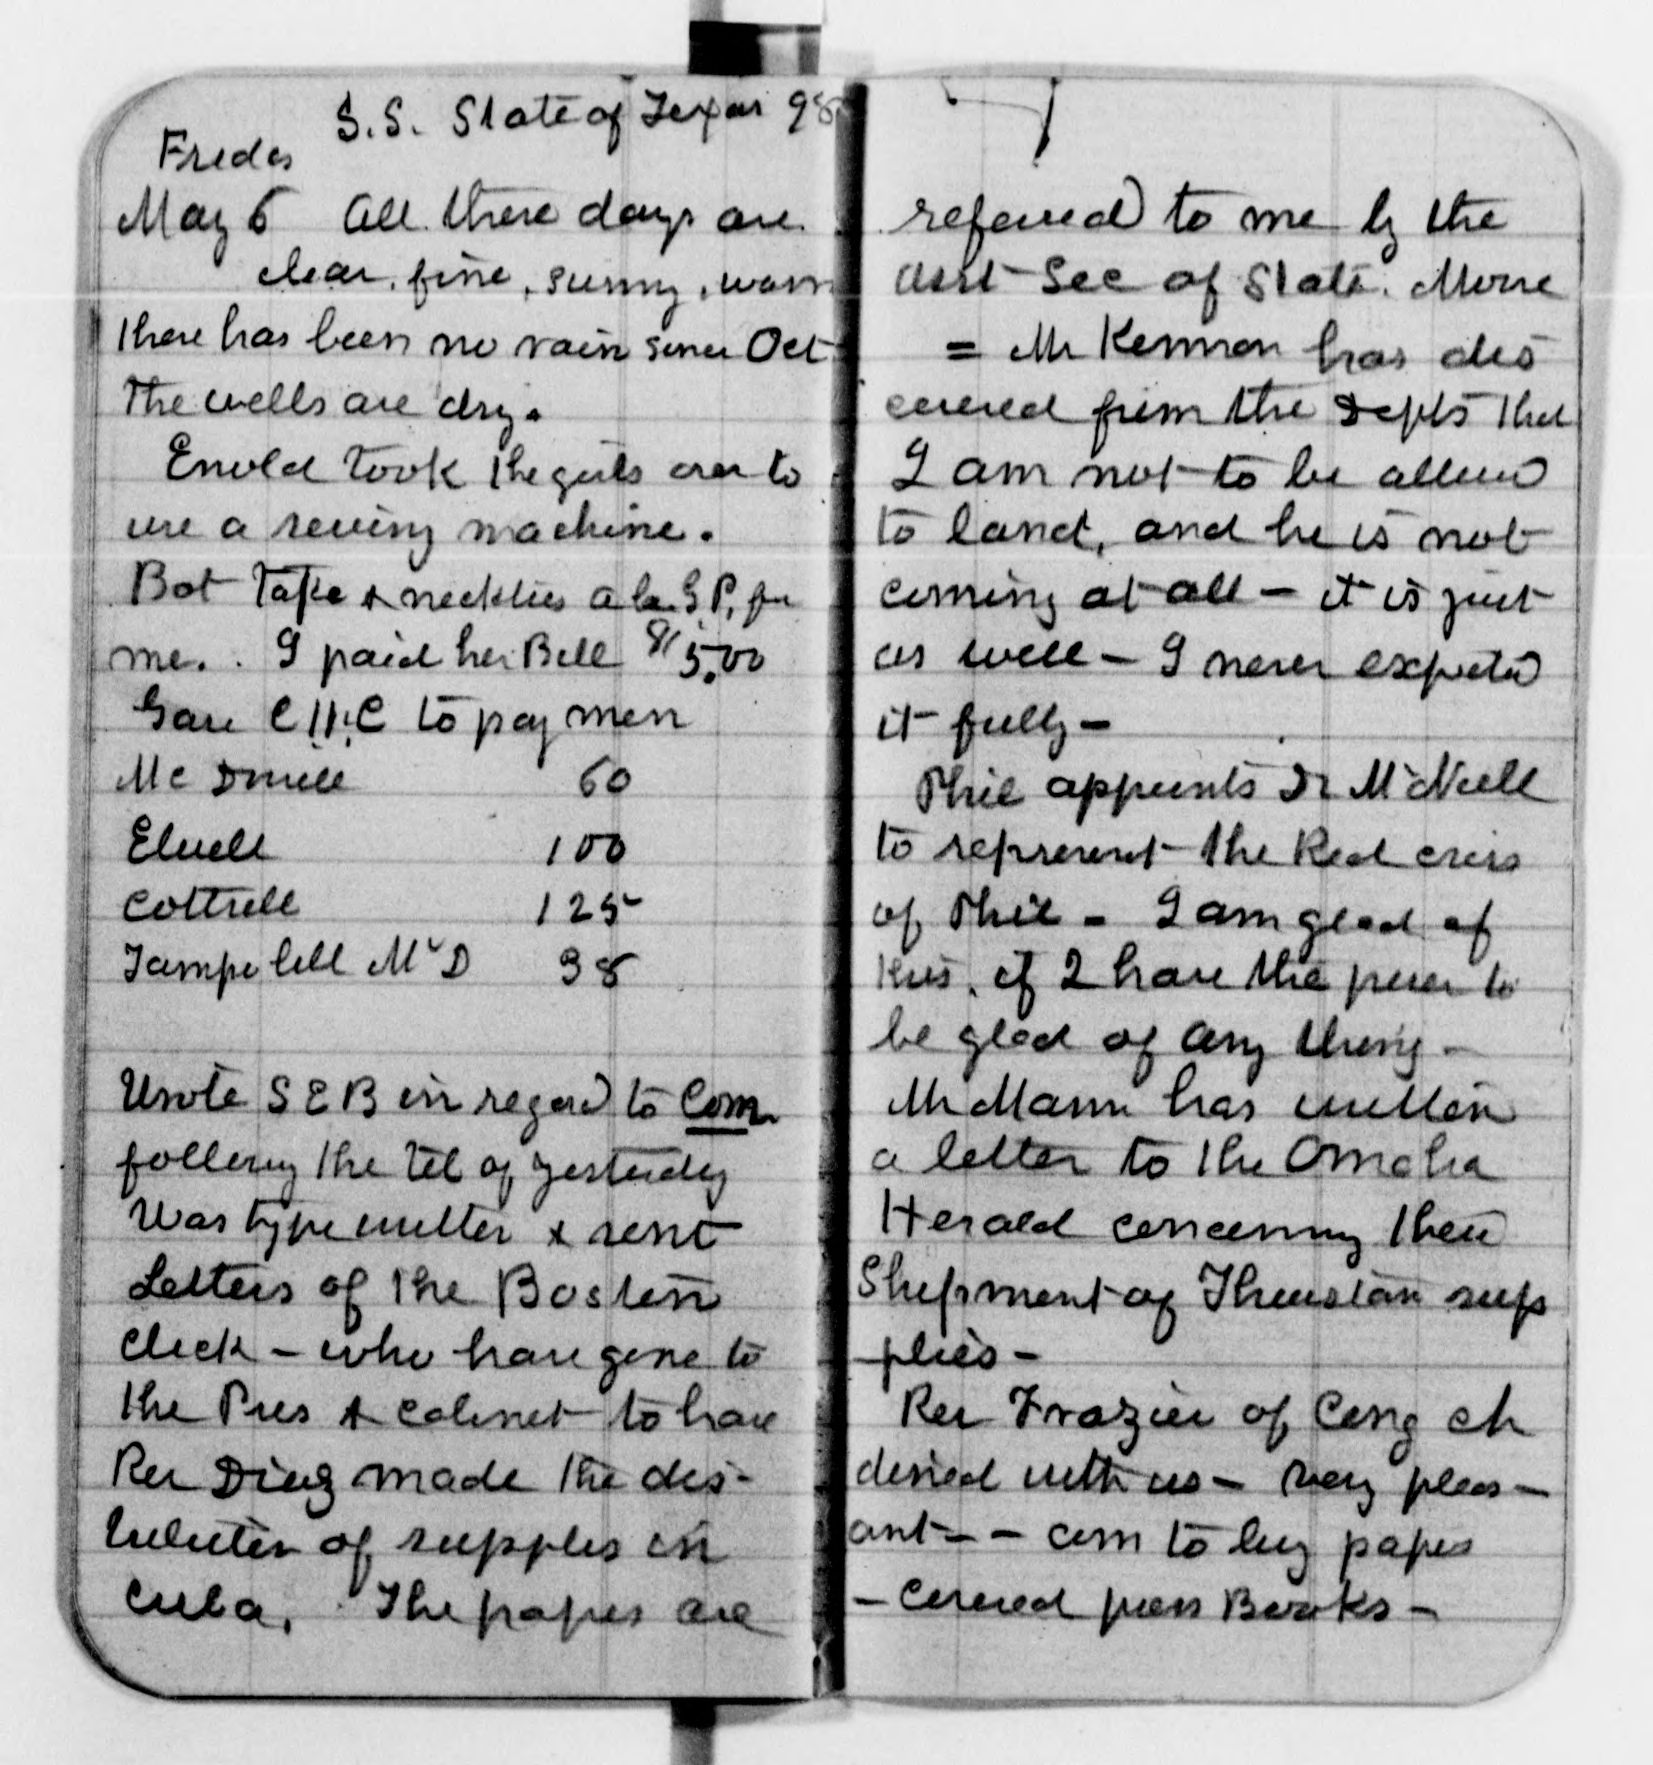 S.S. State of Texas 98
Friday
May 6 All these days are
clear, fine, sunny, warm
There has been no rain since Oct
The wells are dry.
Enola took the girls over to
use a sewing machine.
Bot Tape & neckties a la G P. for
me. I paid her Bill $15.00
Gave C H C to pay men
Mc Dowell 60
Elwell 100
Cottrell 125
Tampa bill McD 98
Wrote S E B in regard to Com.
following the tel of yesterday
Was type written & sent
Letters of the Boston
click - who have gone to
the Pres & cabinet to have
Rev Diaz made the dis-
tributor of supples in
Cuba. The papers are
referred to me by the
Asst Sec of State. Moore
= Mr Kennan has dis
covered from the Depts that
I am not to be allowed
to land, and he is not
coming at all - it is just
as well - I never expected
it fully -
Phil appoints Dr McNeill
to represent the Red cross
of Phil - I am glad of
this, if I have the power to
be glad of any thing -
Mr Mann has written
a letter to the Omaha
Herald concerning their
Shipment of Thurston sup
plies -
Rev Frazier of Cong ch
dined with us - very pleas -
ant - - com to buy paper
- covered press Books -